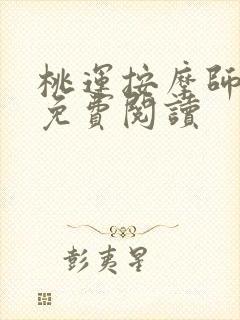 桃運按摩師
免費閱讀
彭夷星